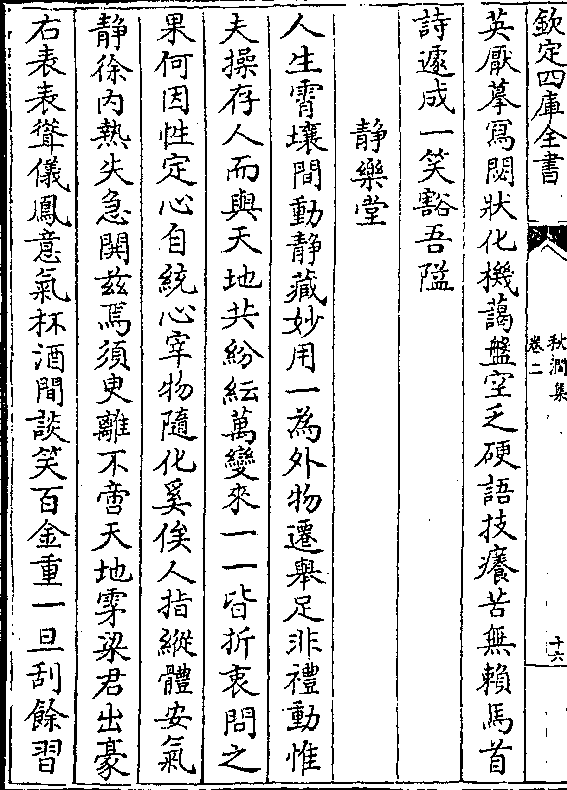 欽定四庫全書
秋澗集
卷二
十六
英厭摹寫閟狀化機藹盤空乏硬語技癢苦無賴馬首
詩遽成一笑豁吾隘
静樂堂
人生霄壤間動静藏妙用一為外物遷舉足非禮動惟
夫操存人而與天地共紛紜萬變來一一皆折衷問之
果何因性定心自統心宰物隨化奚俟人指縱體安氣
静徐内熱失急閧兹焉須臾離不啻天地霿梁君出豪
右表表聳儀鳳意氣杯酒間談笑百金重一旦刮餘習